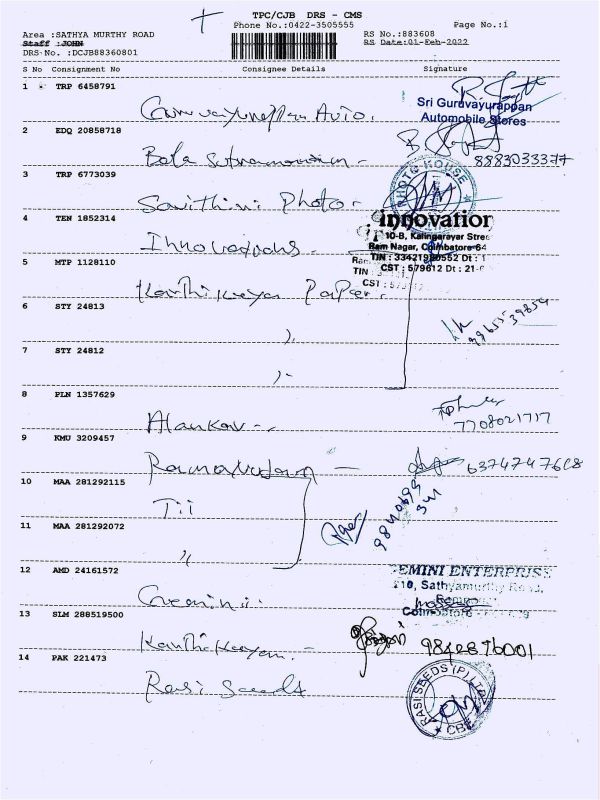 TPC/CJB DRS - CMS
Phone No.:0422-3505555
Page No.:1
Area :SATHYA MURTHY ROAD
Staff :JOHN
DRS-No. :DCJB88360801
RS No.:883608
RS Date:01-Feb-2022
S No Consignment No Consignee Details Signature
1 TRP 6458791
Guruvayurappan Auto.
Sri Guruvayurappan
Automobile Stores
2 EDQ 20858718
Bala Subramanian -
8883033377
3 TRP 6773039
Savithiri Photo -
PHOTO HOUSE
4 TEN 1852314
Innovations.
innovation
10-B, Kalingarayar Stree
Ram Nagar, Coimbatore-64
TIN : 33421980552 Dt : 1
CST : 579612 Dt : 21-
TIN :
CST :
5 MTP 1128110
Karthikeyan Paper.
6 STY 24813
"
9965539854
7 STY 24812
"
8 PLN 1357629
Alankar -
7708021717
9 KMU 3209457
-
10 MAA 281292115
Tii
11 MAA 281292072
"
12 AMD 24161572
Gemini.
GEMINI ENTERPRISE
110, Sathyamurthy Road,
Coimbatore
13 SLM 288519500
Karthikeyan. -
14 PAK 221473
Rasi Seeds
RASI SEEDS (P) LTD
CBE